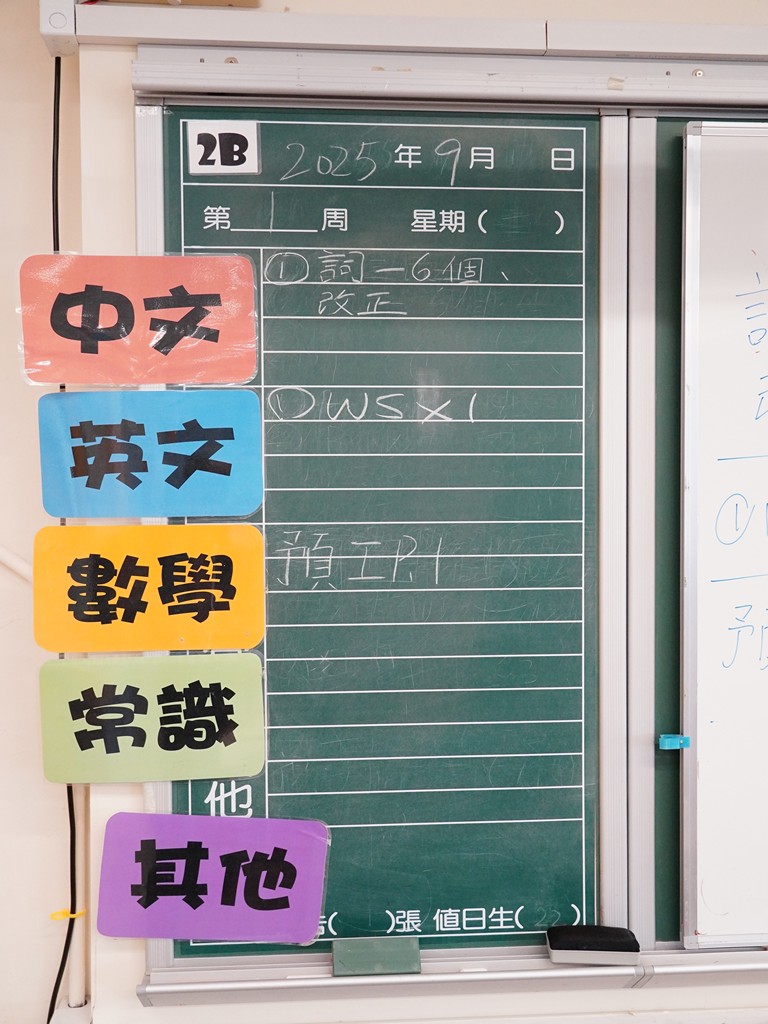 2B 2025年9月 日
第 1 周 星期( )
中文 ① 詞一6個、
改正
英文 ① WS×1
數學 預工P.1
常識
他
其他
( )張 值日生(22)
①
預